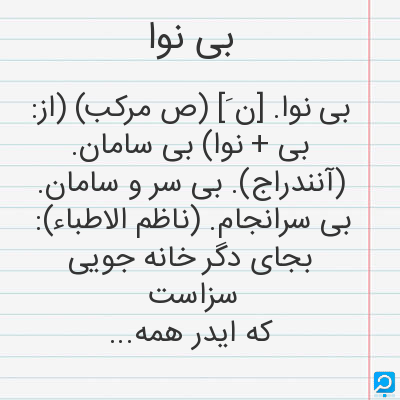 بی نوا
بی نوا. [ن َ] (ص مرکب) (از:
بی + نوا) بی سامان.
(آنندراج). بی سر و سامان.
بی سرانجام. (ناظم الاطباء):
بجای دگر خانه جویی
سزاست
که ایدر همه...